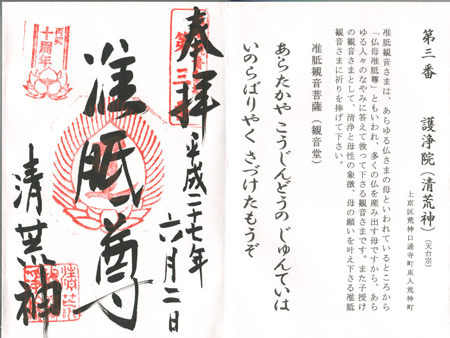 第三番　護浄院（清荒神）（天台宗）
上京区荒神口通寺町東入荒神町
准胝観音さまは、あらゆる仏さまの母といわれているところから
「仏母准胝尊」ともいわれ、多くの仏を産み出す母ですから、あら
ゆる人々のなやみに答えて救って下さる観音さまです。また子授け
の観音さまとして、清浄と母性の象徴、母の願いを叶え下さる准胝
観音さまに祈りを捧げて下さい。
准胝観音菩薩（観音堂）
あらたかや こうじんどうの じゅんていは
いのらばりやく さづけたもうぞ
奉拝
平成二十七年六月二日
准胝尊
清荒神
十周年